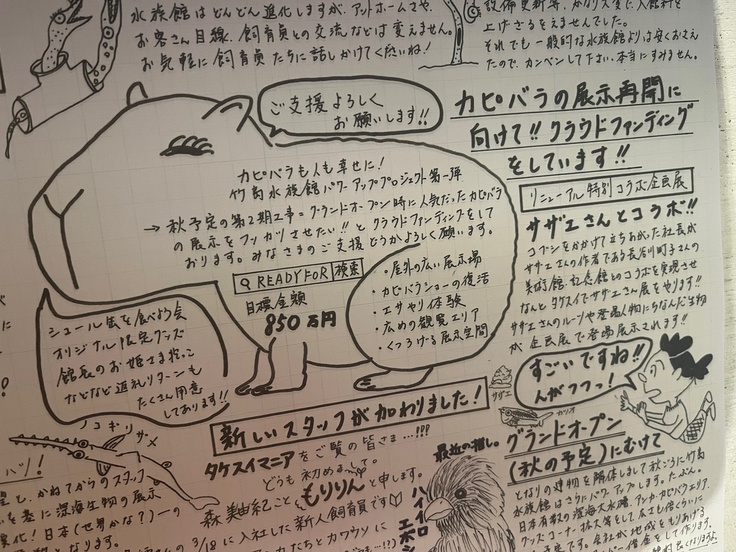 水族館はどんどん進化しますが、アットホームさや、
お客さん目線、飼育員との交流などは変えません。
お気軽に飼育員たちに話しかけてくださいね!
設備更新等、かかりすぎて、入館料を
上げざるをえませんでした。
それでも一般的な水族館よりは安くおさえ
たので、カンベンして下さい。本当にすみません。
ご支援よろしく
お願いします!!
カピバラの展示再開に
向けて!!クラウドファンディング
をしています!!
カピバラも人も幸せに!
竹島水族館パワーアッププロジェクト第一弾
→秋予定の第2期工事=グランドオープン時に人気だったカピバラ
の展示をフッカツさせたい!!とクラウドファンディングをして
おります。みなさまのご支援どうかよろしく願います。
READYFOR 検索
目標金額
850万円
・屋外の広い展示場
・カピバラショーの復活
・エサやり体験
・広めの観覧エリア
・くつろげる展示空間
シュール缶を食べよう会
オリジナル限定グッズ
館長のお姫さま抱っこ
などなど返礼リターンも
たくさん用意
してあります!!
リニューアル特別 コラボ企画展
サザエさんとコラボ!!
コブシをかかげて立ちあがった社長が
サザエさんの作者である長谷川町子さんの
美術館・記念館とのコラボを実現させ
なんとタケスイでサザエさん展をやります!!
サザエさんのルーツや登場人物にちなんだ生物
が企画展で登場展示されます!!
すごいですね!!
んがフフっ!
サザエ
カツオ
ノコギリザメ
新しいスタッフが加わりました!
タケスイマニアをご覧の皆さま…!!?
どうも初めまして。
森 美由紀こともりりんと申します。
3/18に入社した新人飼育員です
最近の推し。
グランドオープン
(秋の予定)にむけて
となりの建物を解体しまして秋ごろに竹島
水族館はさらにパワーアップします。たぶん。
日本有数の深海大水槽、アシカ・カピバラエリア、
と、かねてからのスタッフ
を基に深海生物の展示
化!日本(世界かな?)一の